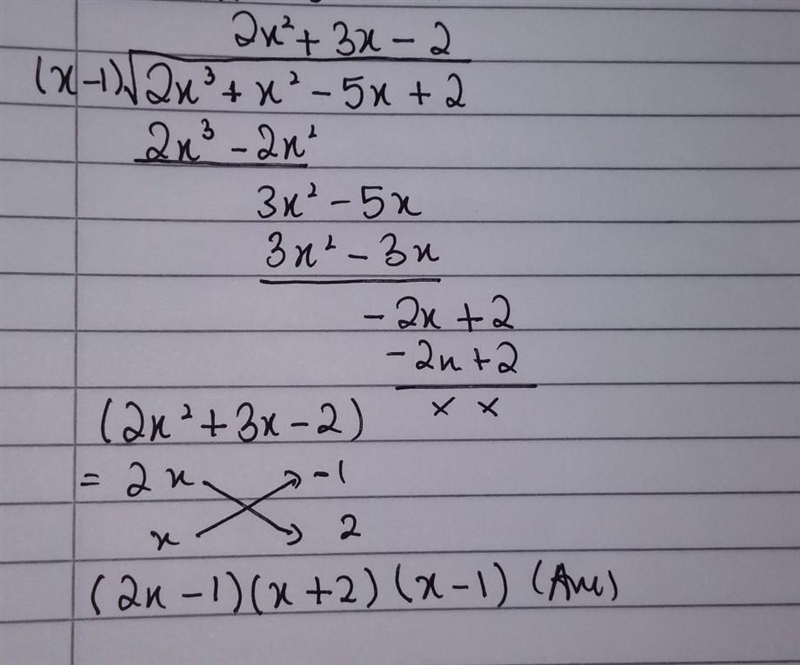 2x² + 3x - 2
(x-1)√2x³ + x² - 5x + 2
2x³ - 2x²
3x² - 5x
3x² - 3x
- 2x + 2
- 2x + 2
x x
(2x² + 3x - 2)
= 2x -1
x 2
(2x - 1)(x + 2)(x - 1) (Ans)